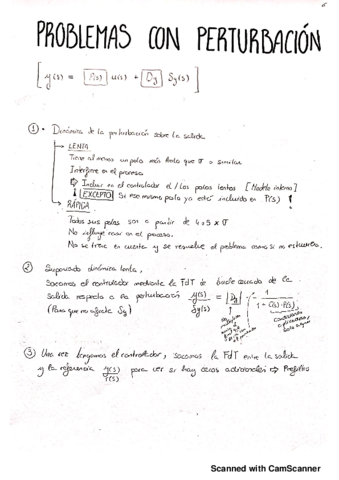 6
PROBLEMAS CON PERTURBACIÓN
[ y(s) = P(s) u(s) + Dy Sy(s) ]
① • Dinámica de la perturbación sobre la salida
→ LENTA
Tiene al menos un polo más lento que σ = similar
Interfiere en el proceso
⇨ Incluir en el controlador el / los polos lentos [Modelo interno]
! EXCEPTO Si ese mismo polo ya está incluido en P(s) !
→ RÁPIDA
Todos sus polos son a partir de 4÷5 x σ
No influye en el proceso.
No se tiene en cuenta y se resuelve el problema como si no estuviera.
② Suponiendo dinámica lenta,
Sacamos el controlador mediante la FdT de bucle cerrado de la
salida respecto a la perturbación y(s)/Sy(s) = |Dy| · 1/(1 + C(s)·P(s))
(Para que no afecte Sy)
③ Una vez tengamos el controlador, sacamos la FdT entre la salida
y la referencia y(s)/r(s) para ver si hay ceros adicionales ⇒ Prefiltro
Scanned with CamScanner